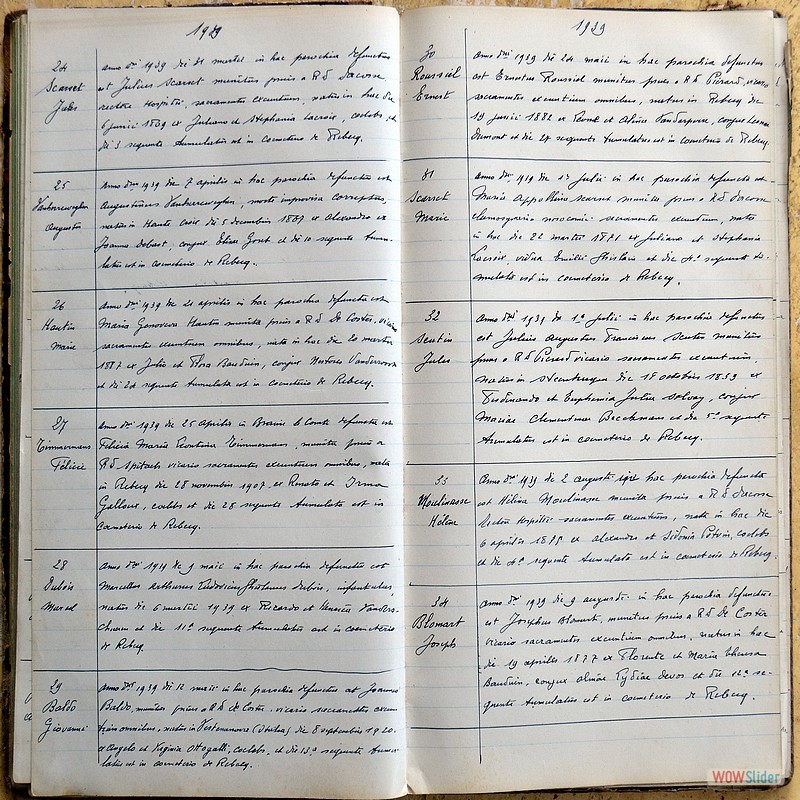 1939
24
Scarset
Jules
anno dni 1939 die 31 martii in hac parochia defunctus
est Julius Scarset munitus prius a R.D. Dacosse
rectore hospitii, sacramentis exeuntium, natus in hac die
6 junii 1839 ex Juliano et Stephania Lacroix, coelebs, et
die 3 sequente tumulatus est in coemeterio de Rebecq.
25
Augustin
Anno dni 1939 die 7 aprilis in hac parochia defunctus est
Augustinus morte improvisa correptus,
natus in Haute Croix die 5 decembris 1867 ex Alexandro et
Joanna conjux Elisae et die 10 sequente tumu-
latus est in coemeterio de Rebecq.
26
Hautin
Marie
Anno dni 1939 die 21 aprilis in hac parochia defuncta est
Maria Genoveva Hautin munita prius a R.D. De Coster, vicario
sacramentis exeuntium omnibus, nata in hac die 20 martii
1887 ex Julio et Flora Bauduin, conjux Nestoris
et die 24 sequente tumulata est in coemeterio de Rebecq.
27
Timmermans
Félicie
Anno dni 1939 die 25 aprilis in Braine le Comte defuncta est
Felicia Maria Leontina Timmermans, munita prius a
R.D. Spitaels vicario sacramentis exeuntium omnibus, nata
in Rebecq die 28 novembris 1907 ex Renato et Irma
Galloux, coelebs et die 28 sequente tumulata est in
coemeterio de Rebecq.
28
Dubois
Marcel
Anno dni 1939 die 9 maii in hac parochia defunctus est
Marcellus Arthurus Ludovicus Ghislenus Dubois, infantulus,
natus die 6 martii 1939 ex Ricardo et
et die 11a sequente tumulatus est in coemeterio
de Rebecq.
29
Baldo
Giovanni
Anno dni 1939 die 12 maii in hac parochia defunctus est Joannes
Baldo, munitus prius a R.D. De Coster vicario sacramentis exeun-
tium omnibus, natus in Vestenanova (Italia) die 8 septembris 1920
ex Angelo et Ottogalli, coelebs, et die 13a sequente tumu-
latus est in coemeterio de Rebecq.
1939
30
Roussiel
Ernest
Anno dni 1939 die 24 maii in hac parochia defunctus
est Ernestus Roussiel munitus prius a R.D. Pierard, vicario
sacramentis exeuntium omnibus, natus in Rebecq die
19 junii 1882 ex René et Alina conjux
Dumont et die 27 sequente tumulatus est in coemeterio de Rebecq.
31
Scarset
Marie
Anno dni 1939 die 1a Julii in hac parochia defuncta est
Maria Appollina Scarset munita prius a R.D. Dacosse
sacramentis exeuntium, nata
in hac die 22 martii 1871 ex Juliano et Stephania
Lacroix, vidua Emilii Ghislain et die 4a sequente tu-
mulata est in coemeterio de Rebecq.
32
Sentin
Jules
Anno dni 1939 die 1a Julii in hac parochia defunctus
est Julius Augustus Franciscus Sentin munitus
prius a R.D. Pierard vicario sacramentis exeuntium,
natus in Steenkerque die 18 octobris 1853 ex
Ferdinando et Euphemia Julia Solvay, conjux
Mariae Clementinae Beeckmans et die 5a sequente
tumulatus est in coemeterio de Rebecq.
33
Moulinasse
Hélène
Anno dni 1939 die 2 augusti in hac parochia defuncta
est Hélèna Moulinasse munita prius a R.D. Dacosse
rectore hospitii sacramentis exeuntium, nata in hac die
6 aprilis 1875 ex Alexandro et Sidonia Potvin, coelebs
et die 4a sequente tumulata est in coemeterio de Rebecq.
34
Blomart
Joseph
Anno dni 1939 die 9 augusti in hac parochia defunctus
est Josephus Blomart, munitus prius a R.D. De Coster
vicario sacramentis exeuntium omnibus, natus in hac
die 19 aprilis 1877 ex Florente et Maria Theresa
Bauduin, conjux Alinae Lydiae Devos et die 12a se-
quente tumulatus est in coemeterio de Rebecq.
WOWSlider